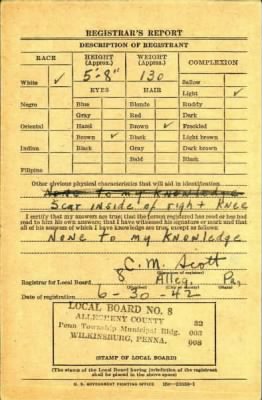 REGISTRAR'S REPORT
DESCRIPTION OF REGISTRANT
RACE HEIGHT (Approx.) WEIGHT (Approx.) COMPLEXION
White ✓ 5'-8" 130 Sallow
EYES HAIR Light ✓
Negro Blue Blonde Ruddy
Gray Red Dark
Oriental Hazel Brown ✓ Freckled
Brown ✓ Black Light brown
Indian Black Gray Dark brown
Bald Black
Filipino
Other obvious physical characteristics that will aid in identification
None to my Knowledge
Scar inside of right Knee
I certify that my answers are true; that the person registered has read or has had
read to him his own answers; that I have witnessed his signature or mark and that
all of his answers of which I have knowledge are true, except as follows:
None to my Knowledge
C. M. Scott
(Signature of registrar)
Registrar for Local Board 8 Alleg. Pa.
(Number) (City or county) (State)
Date of registration 6-30-42
LOCAL BOARD NO. 8
ALLEGHENY COUNTY 32
Penn Township Municipal Bldg. 003
WILKINSBURG, PENNA. 008
(STAMP OF LOCAL BOARD)
(The stamp of the Local Board having jurisdiction of the registrant
shall be placed in the above space)
U. S. GOVERNMENT PRINTING OFFICE